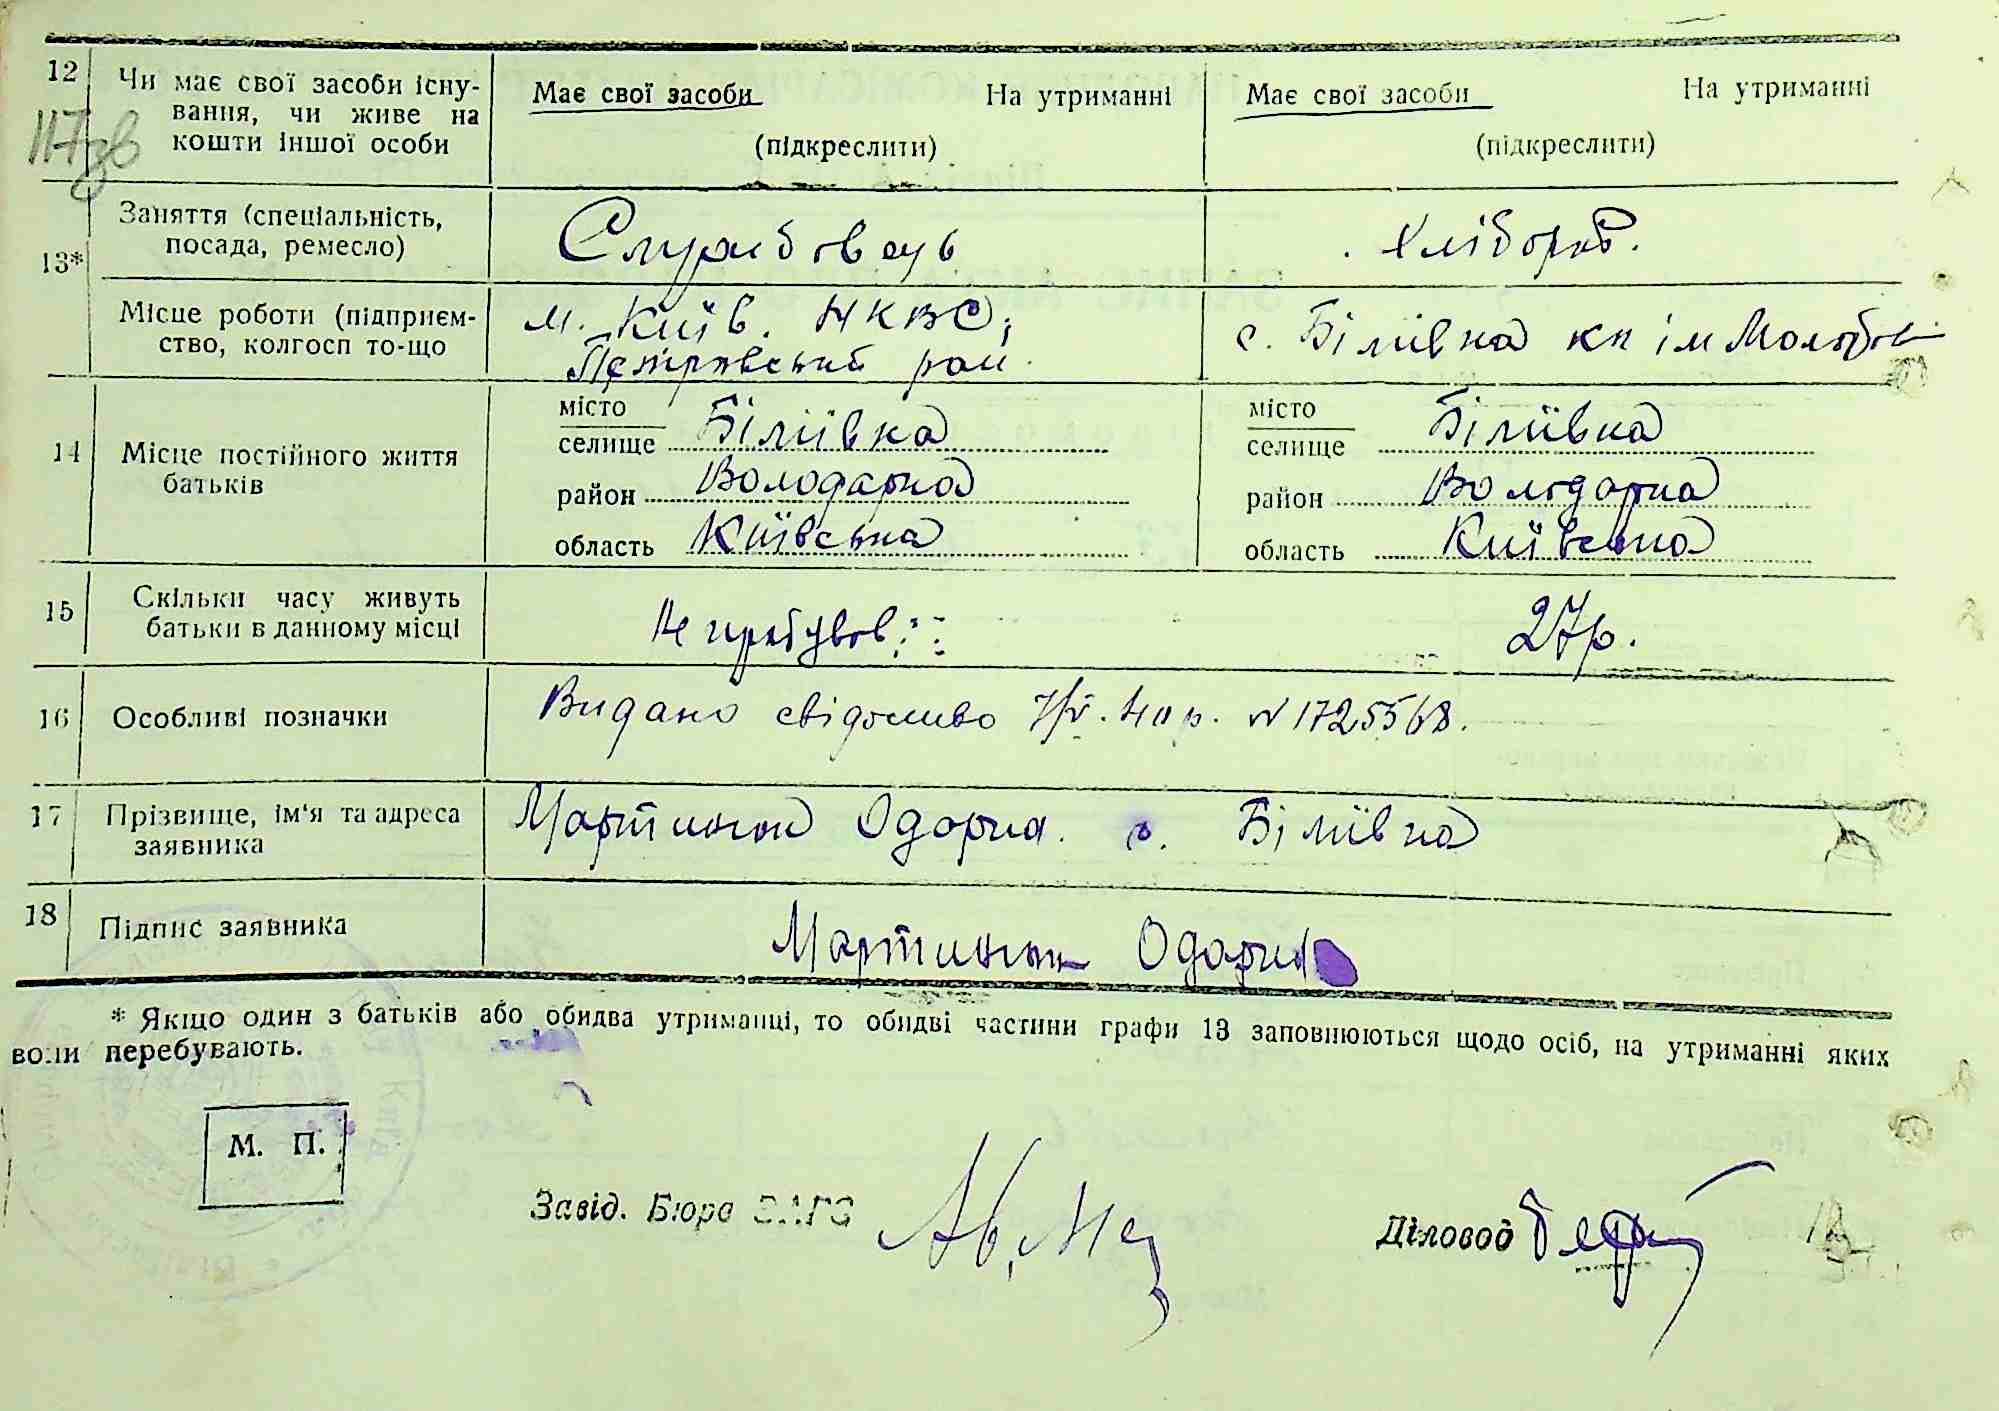 12 Чи має свої засоби існу-
вання, чи живе на
кошти іншої особи
Має свої засоби На утриманні
(підкреслити)
Має свої засоби На утриманні
(підкреслити)
117зв
13* Заняття (спеціальність,
посада, ремесло)
Службовець
Хлібороб.
Місце роботи (підприєм-
ство, колгосп то-що
м. Київ. НКВС,
Петрівський рай.
с. Біліївка кп ім Молотов
14 Місце постійного життя
батьків
місто
селище Біліївка
район Володарка
область Київська
місто
селище Біліївка
район Володарка
область Київська
15 Скільки часу живуть
батьки в данному місці
Не прибував
27р.
16 Особливі позначки
Видано свідоцтво 7/V. 40 р. № 1725568.
17 Прізвище, ім'я та адреса
заявника
Мартинюк Одарка. с. Біліївка
18 Підпис заявника
Мартинюк Одарка
* Якщо один з батьків або обидва утриманці, то обидві частини графи 13 заповнюються щодо осіб, на утриманні яких
вони перебувають.
М. П.
Завід. Бюро ЗАГС
Діловод